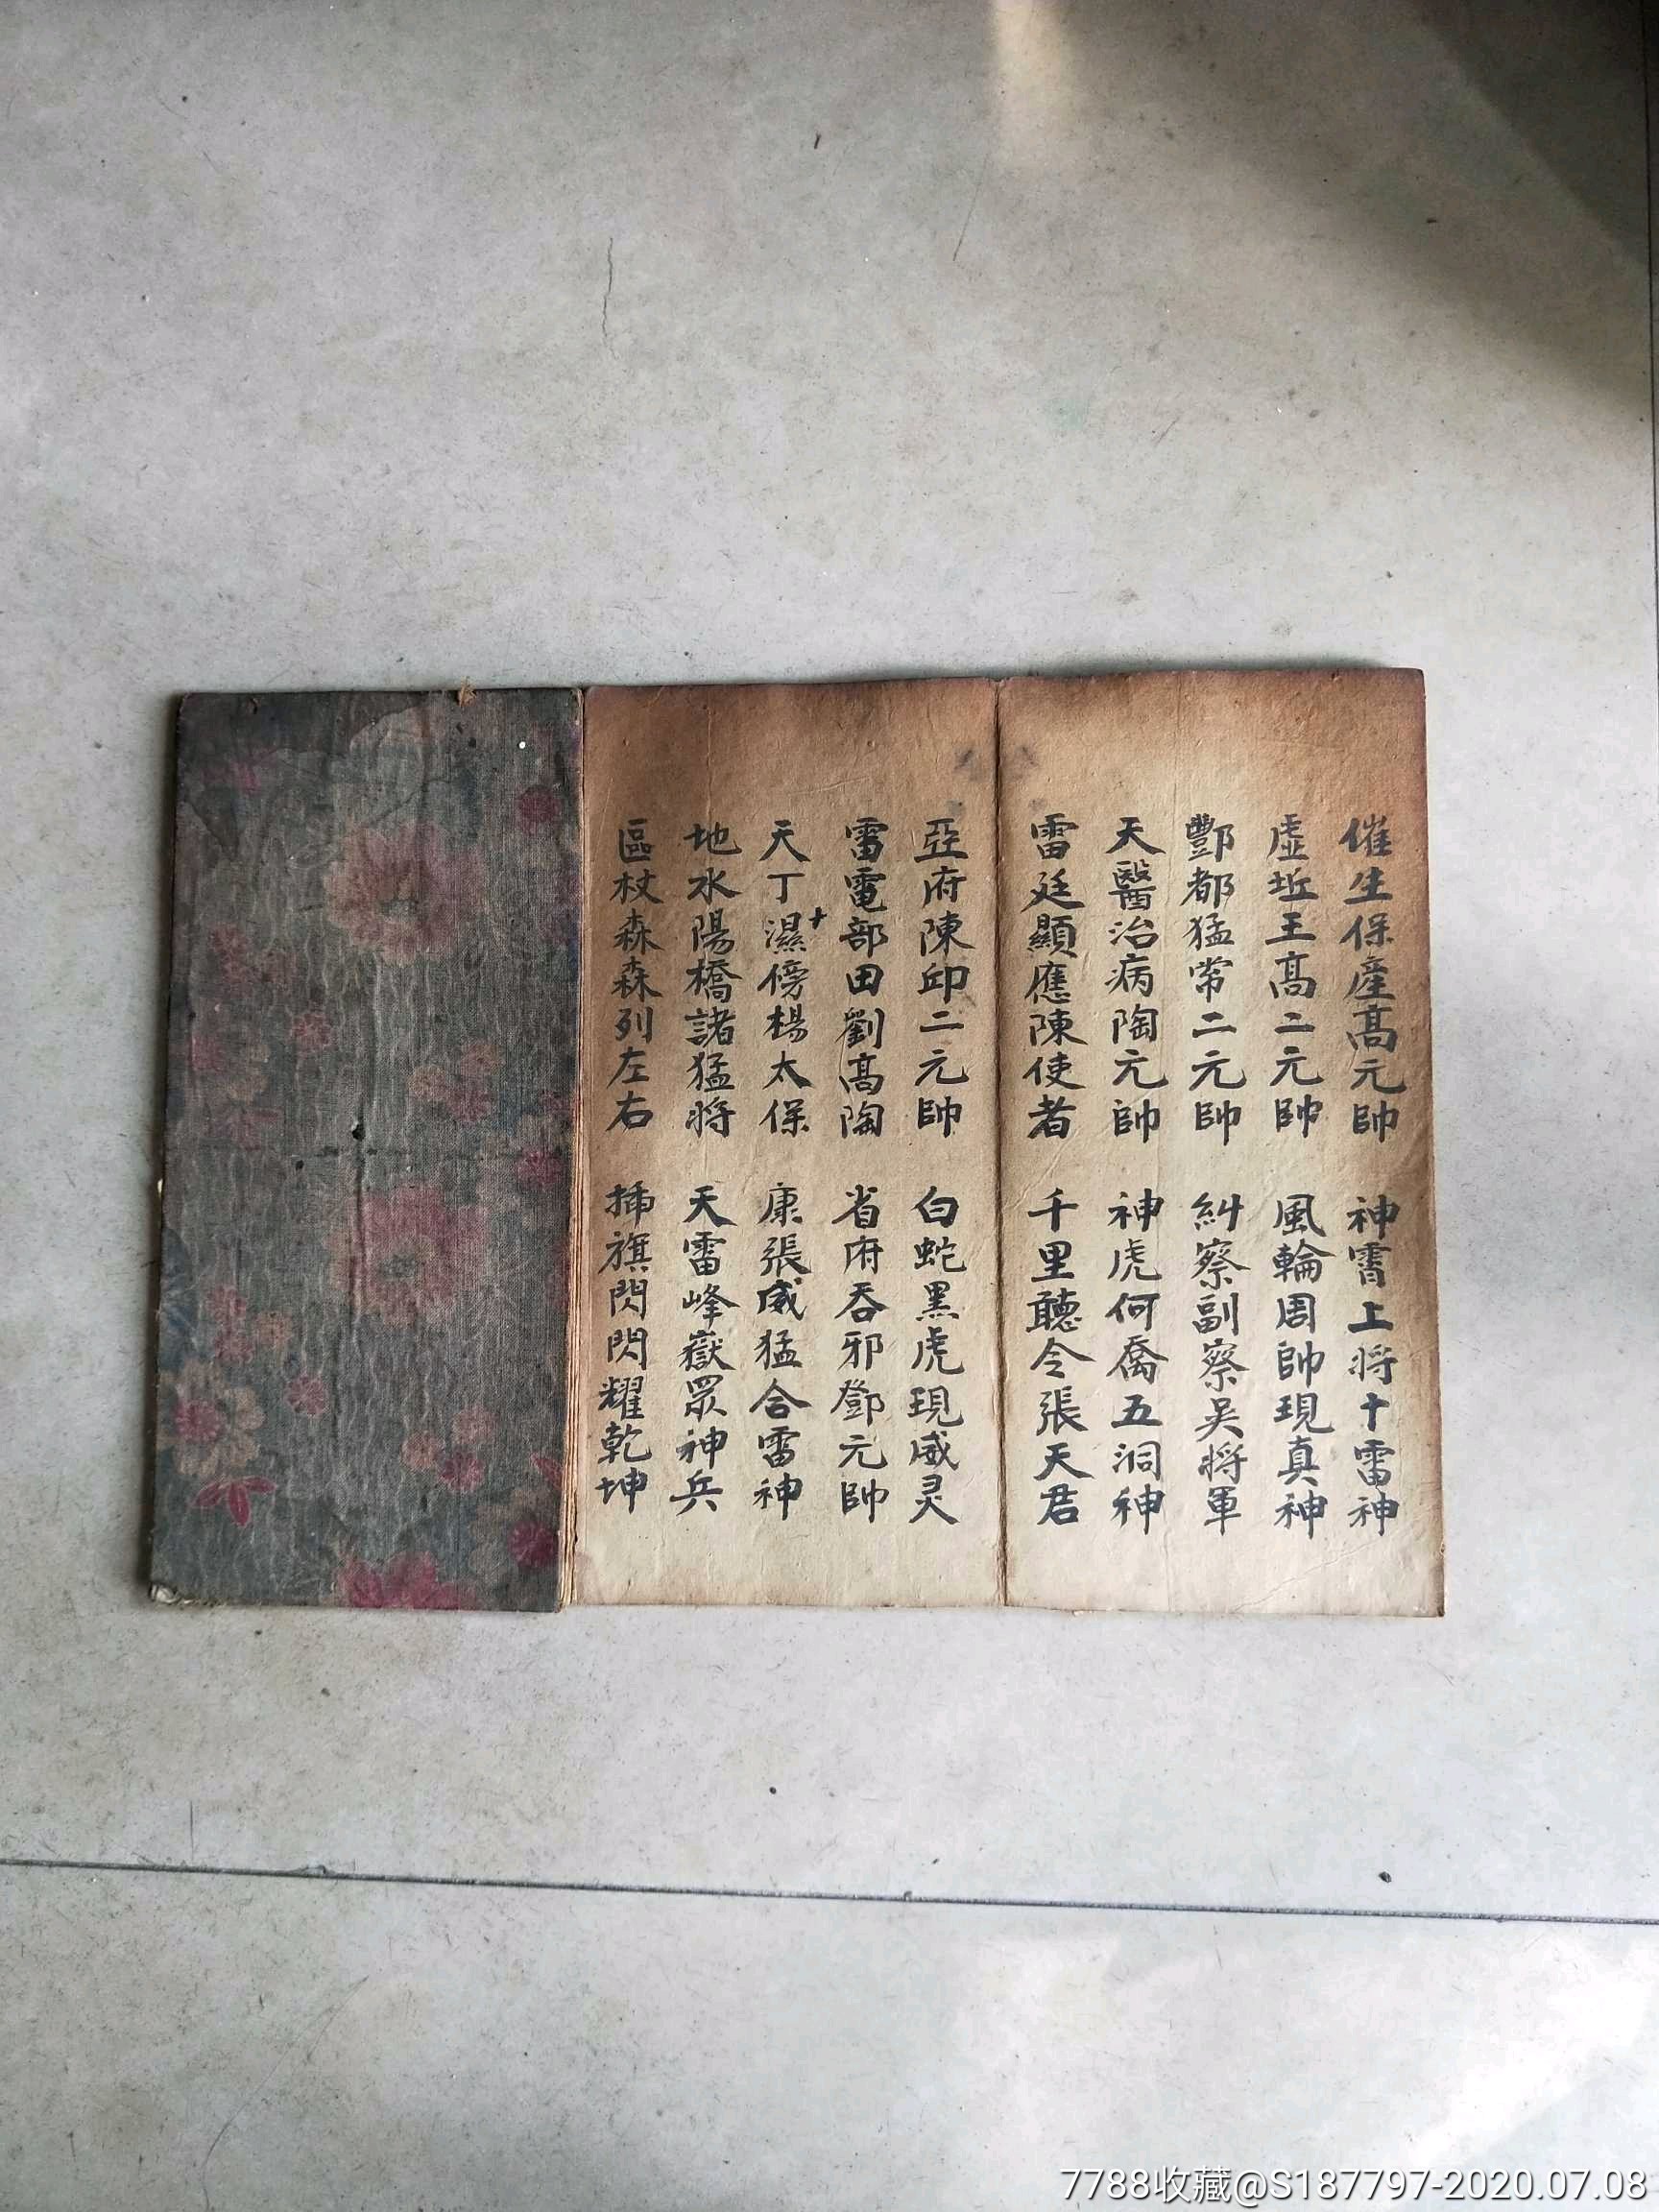 催生保產高元帥 神霄上將十雷神
虛坵王高二元帥 風輪周帥現真神
酆都猛常二元帥 糾察副察吳將軍
天醫治病陶元帥 神虎何喬五洞神
雷廷顯應陳使者 千里聽令張天君
亞府陳邱二元帥 白蛇黑虎現威灵
雷電部田劉高陶 省府吞邪鄧元帥
天丁濕傍楊太保 康張威猛合雷神
地水陽橋諸猛將 天雷峰嶽眾神兵
區杖森森列左右 揷旗閃閃耀乾坤
7788收藏@S187797-2020.07.08